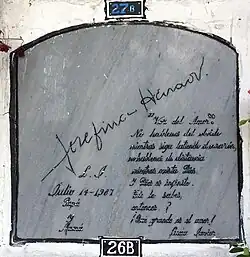 27B
Josefina Henao V.
"Voz del Amor"
No hablemos del olvido
mientras siga latiendo el corazón,
ni hablemos de distancia
mientras exista Dios.
Y Dios es infinito.
Tú lo sabes,
entonces ?
¡ Qué grande es el amor!
L. F.
Julio 14-1987
Papá
y
Mamá
26B